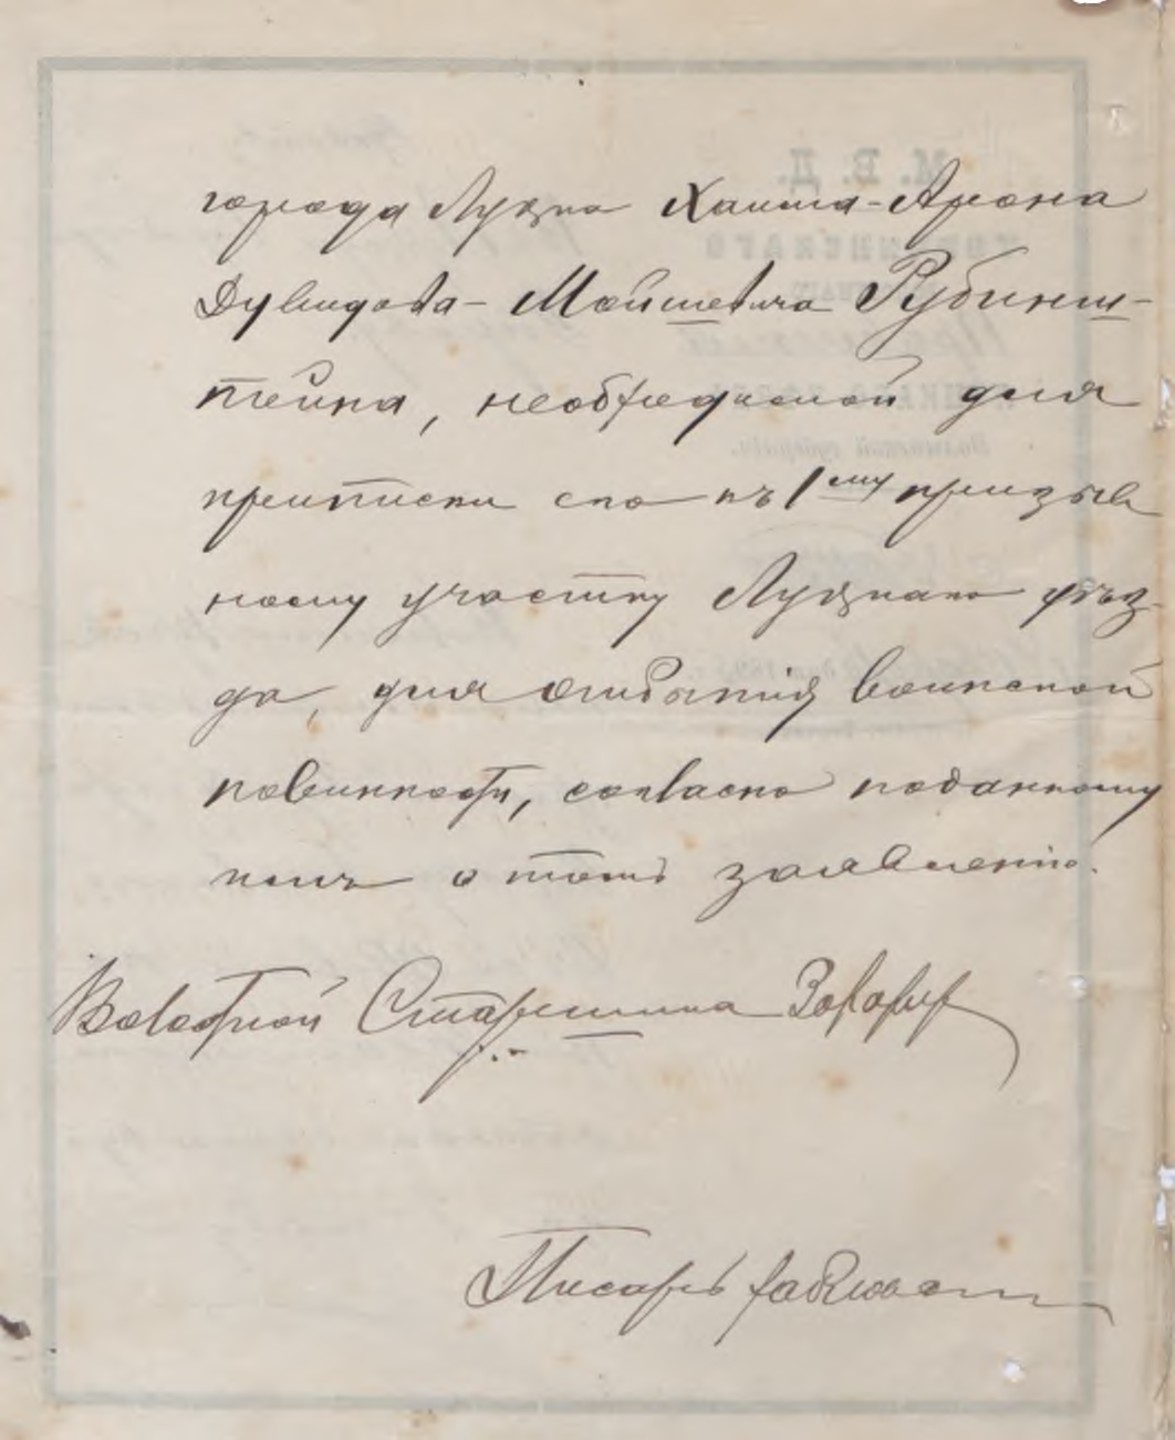 города Луцка Хаима-Арона
Дувидова-Мойшевича Рубинш-
тейна, необходимой для
приписки его къ 1ому призыв
ному участку Луцкаго уѣз-
да, для отбытія воинской
повинности, согласно поданному
имъ о томъ заявленію.
Волостной Старшина
Писарь